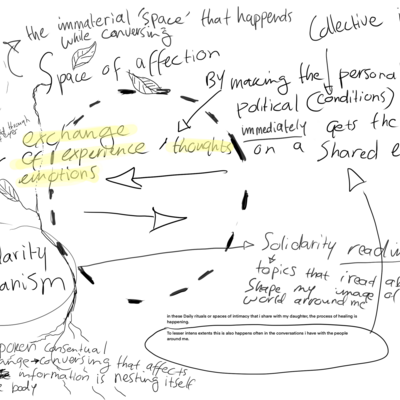 the immaterial 'space' that happends
while conversing
Space of affection
Collective
By making the persona
political (conditions)
immediately gets the
on a Shared e
through
exchange
of experience / thoughts
emotions
Solidarity readin
topics that i read ab
shape my image of
world arround me
arity
anism
in these Daily rituals or spaces of intimacy that I share with my daughter, the process of healing is
happening.
To lesser intens extents this is also happens often in the conversations i have with the people
around me.
oken consentual
ange → conversing that affects
information is nesting itself
body